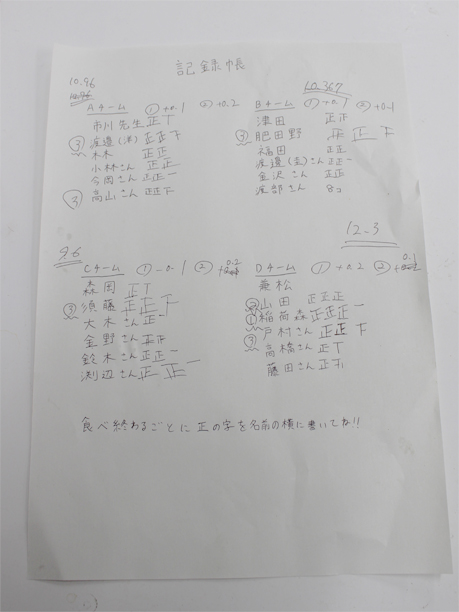 記録帳
10.96
Aチーム ①+0.1 ②+0.2
市川先生 正丅
③ 渡邉(洋) 正正下
木林 正正
小林さん 正正
今岡さん 正正一
③ 高山さん 正正下
10.367
Bチーム ①+0.1 ②+0.1
津田 正正
③ 肥田野 正正下
福田 正正
渡邉(圭)さん 正正一
金沢さん 正正
渡部さん 8コ
9.6
Cチーム ①-0.1 ② +0.2
森岡 正丅
③ 須藤 正正下
大木さん 正一
金野さん 正正
鈴木さん 正正一
渕辺さん 正正一
12.3
Dチーム ①+0.2 ②+0.1
兼松
② 山田 正正正
① 稲荷森 正正正一
③ 戸村さん 正正下
高橋さん 正丅
藤田さん 正
食べ終わるごとに正の字を名前の横に書いてね!!